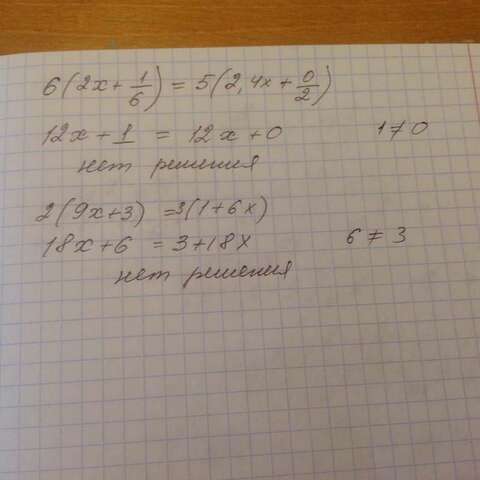 6(2x + 1/6) = 5(2,4x + 0/2)
12x + 1 = 12x + 0 1 ≠ 0
нет решения
2(9x+3) = 3(1+6x)
18x+6 = 3+18x 6 ≠ 3
нет решения